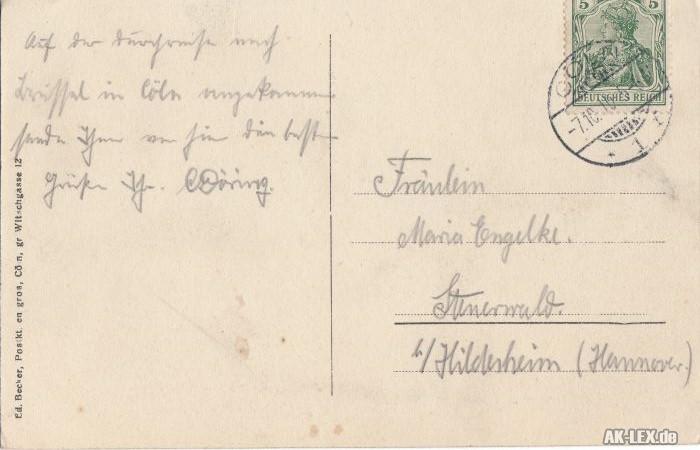 Auf der Durchreise nach
Brüssel in Cöln angekommen
sende Ihnen von hier die besten
Grüße Ihr. C Döring.
5
5
DEUTSCHES REICH
CÖLN
-7.10.10
* 1
Fräulein
Maria Engelke.
Steuerwald.
b/Hildesheim (Hannover.)
Ed. Becker, Postkt. en gros, Cöln, gr Witschgasse 12
AK-LEX.de